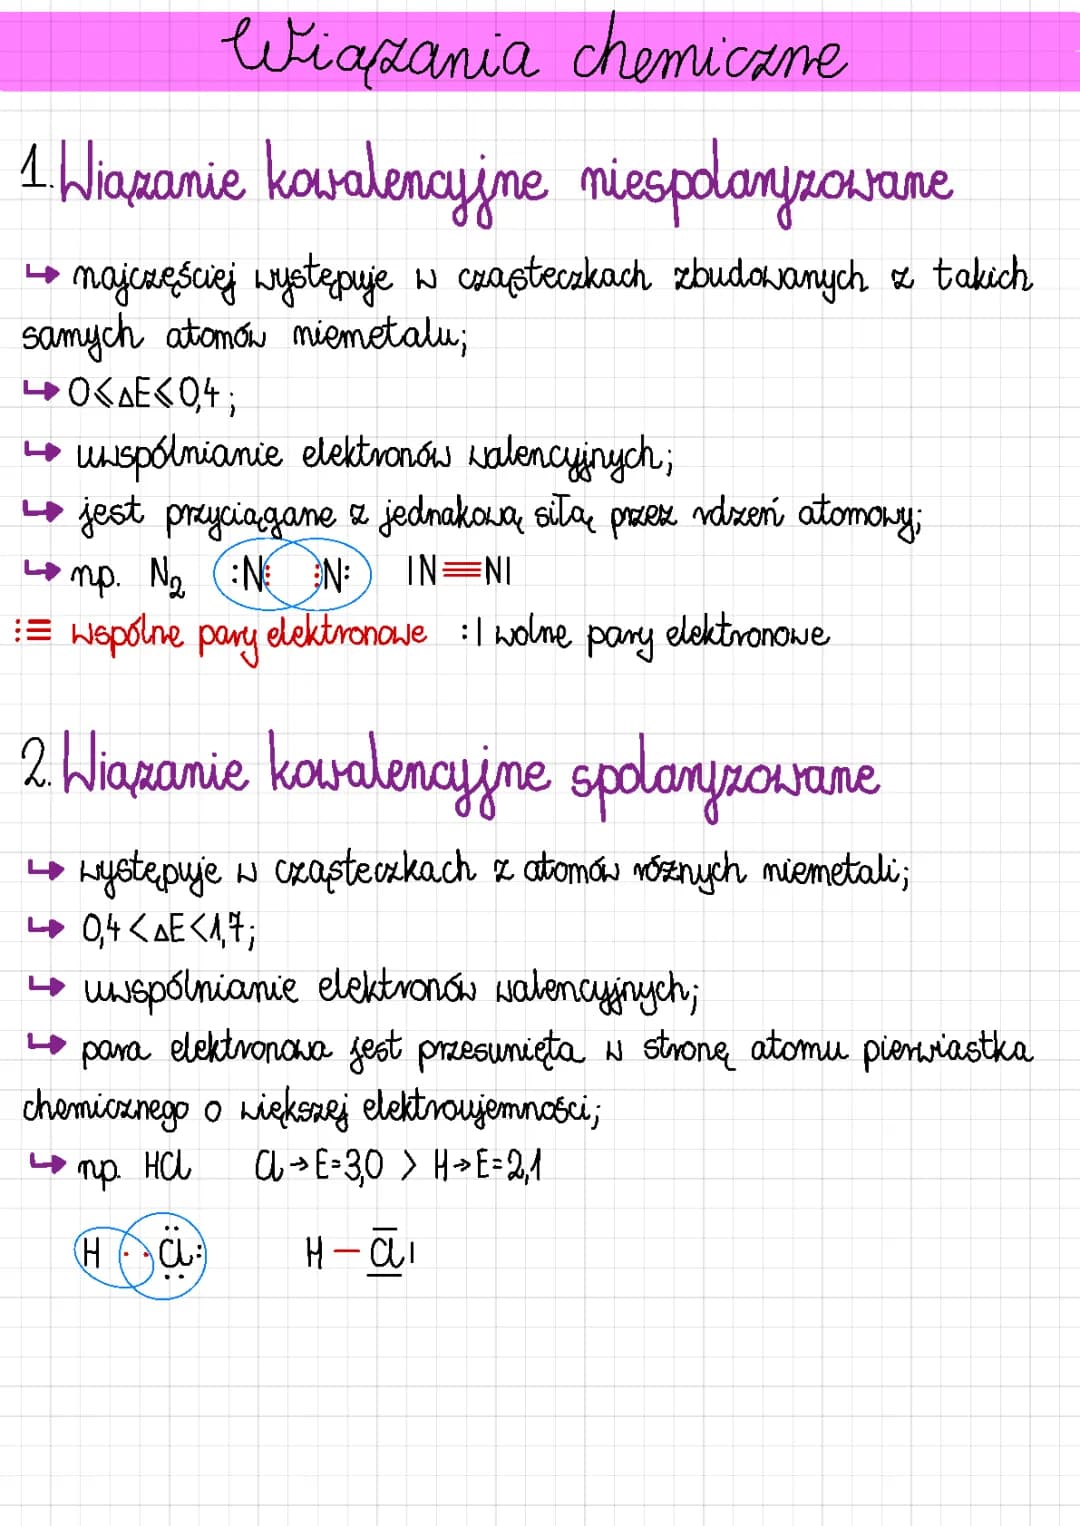 Wiązania chemiczne
1. Wiązanie kowalencyjne niespolaryzowane
↳ najczęściej występuje w cząsteczkach zbudowanych z takich
samych atomów niemetalu;
↳ 0⩽ΔE⩽0,4;
↳ uwspólnianie elektronów walencyjnych;
↳ jest przyciągane z jednakową siłą przez rdzeń atomowy;
↳ np. N₂ :N⋮ ⋮N: |N≡N|
⋮≡ wspólne pary elektronowe :| wolne pary elektronowe
2. Wiązanie kowalencyjne spolaryzowane
↳ występuje w cząsteczkach z atomów różnych niemetali;
↳ 0,4<ΔE<1,7;
↳ uwspólnianie elektronów walencyjnych;
↳ para elektronowa jest przesunięta w stronę atomu pierwiastka
chemicznego o większej elektroujemności;
↳ np. HCl Cl→E=3,0 > H→E=2,1
H ·· Cl: H–Cl|